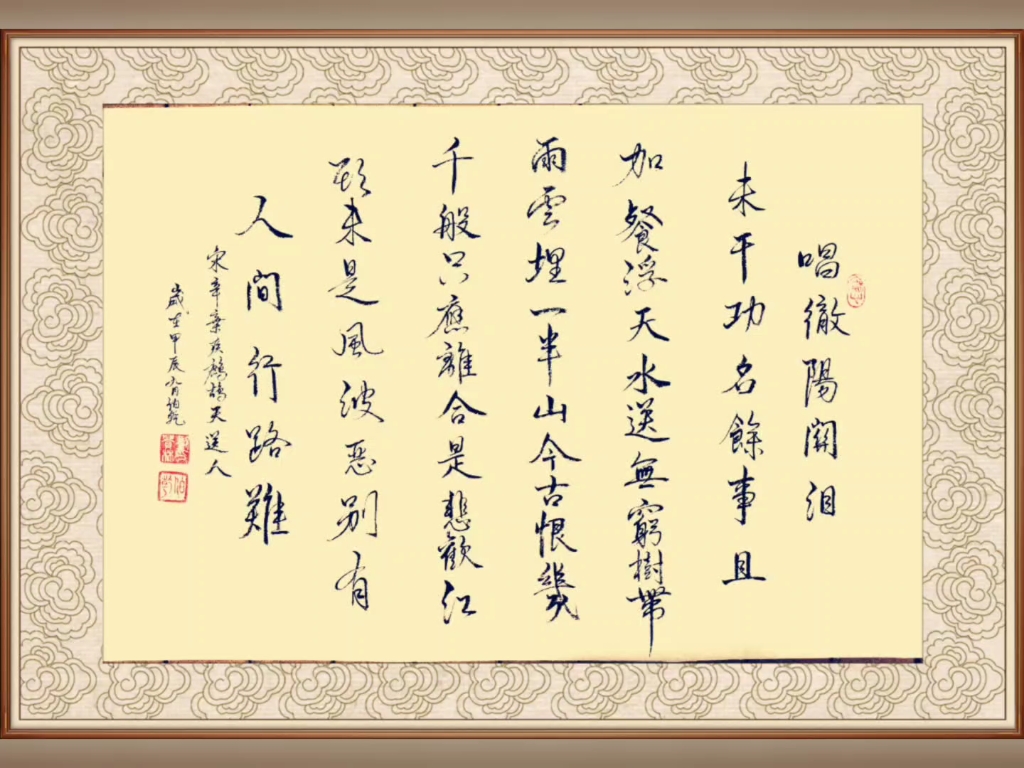 唱徹陽關泪
未干功名餘事且
加餐浮天水送無窮樹帶
雨雲埋一半山今古恨幾
千般只應離合是悲歡江
頭未是風波惡别有
人間行路難
宋辛棄疾鷓鴣天送人
歲在甲辰